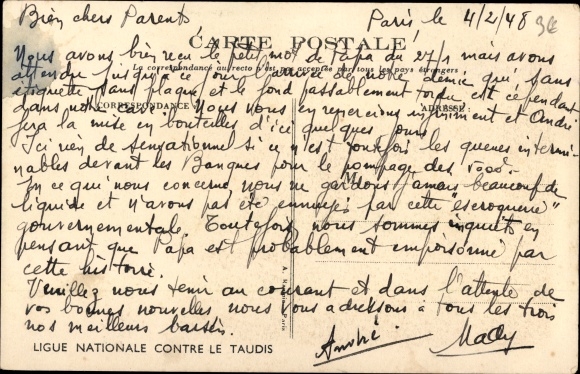 Bien chers Parents, Paris, le 4/2/48
CARTE POSTALE
Nous avons bien reçu le petit mot de Papa du 27/1 mais avons
La correspondance au recto n'est pas acceptée par tous les pays étrangers
attendu jusqu'à ce jour l'arrivée de notre demie qui sans
étiquette, sans plaque et le fond passablement tordu est cependant
CORRESPONDANCE ADRESSE
dans notre cave. Nous vous en remercions infiniment et André
fera la mise en bouteilles d'ici quelques jours.
Ici rien de sensationnel si ce n'est toutefois les queues intermi-
nables devant les Banques pour le pompage des 5000.
En ce qui nous concerne, nous ne gardons jamais beaucoup de
liquide et n'avons pas été ennuyés par cette "escroquerie"
gouvernementale. Toutefois nous sommes inquiets en
pensant que Papa est probablement empoisonné par
cette histoire.
Veuillez nous tenir au courant et dans l'attente de
vos bonnes nouvelles nous vous adressons à tous les trois
nos meilleurs baisers.
André. Mady
LIGUE NATIONALE CONTRE LE TAUDIS